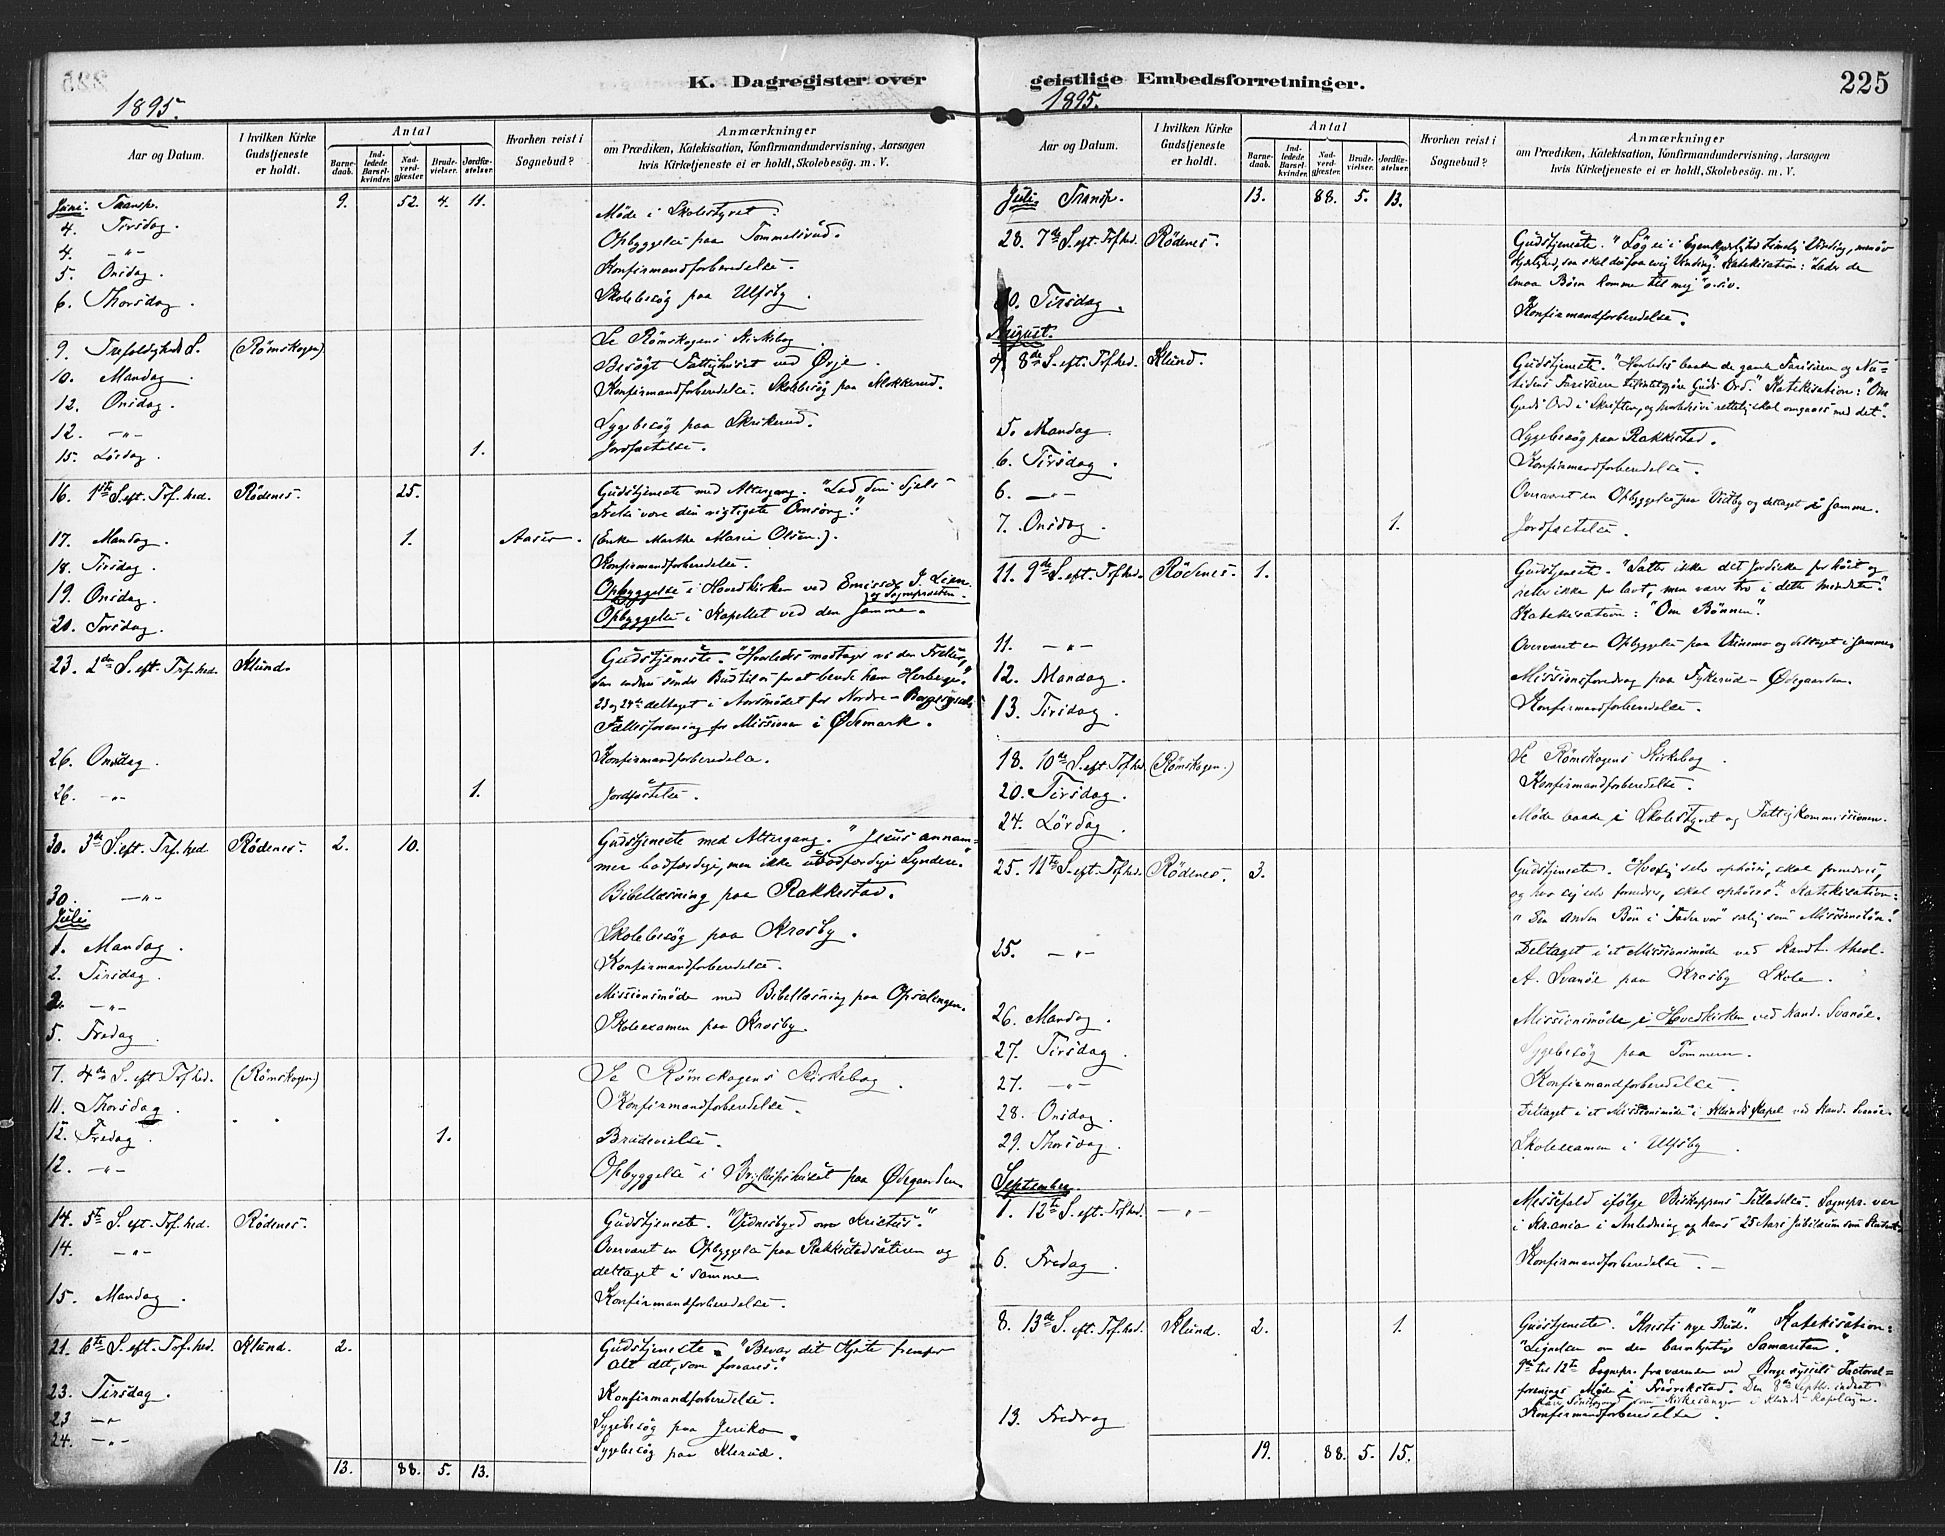 K. Dagregister over geistlige Embedsforretninger. 225
1895.
Aar og Datum. I hvilken Kirke Gudstjeneste er holdt. Antal Barnedaab. Indledede Barselkvinder. Nadverdgjester. Brudevielser. Jordfæstelser. Hvorhen reist i Sognebud? Anmærkninger om Prædiken, Katekisation, Konfirmandundervisning, Aarsagen hvis Kirketjeneste ei er holdt, Skolebesøg. m. V.
Juni. Transp. 9. 52. 4. 11.
4. Tirsdag. Møde i Skolestyret.
4. -"- Opbyggelse paa Tommelsrud.
5. Onsdag. Konfirmandforberedelse.
6. Thorsdag. Skolebesøg paa Ulfsby.
9. Trefoldigheds S. (Rømskogen) Se Rømskogens Kirkebog.
10. Mandag. Besøgt Fattighuset ved Ørje.
12. Onsdag. Konfirmandforberedelse. Skolebesøg paa
12. -"- Sygebesøg paa Skrikerud.
15. Lördag. 1. Jordfæstelse.
16. 1ste S. eft. Tref.hed. Rødenes. 25. Gudstjeneste med Altergang. "Lad din Sjels
Frelse være din vigtigste Omsorg."
17. Mandag. 1. Aaser. (Enke Marthe Marie Olsen.).
18. Tirsdag. Konfirmandforberedelse.
19. Onsdag. Opbyggelse i Hovedkirken ved Emissær J. Lien
og Sognepræsten.
20. Torsdag. Opbyggelse i Kapellet ved den samme.
23. 2den S. eft. Tref.hed. Klund. Gudstjeneste. "Hvorledes modtager vi den Frelser,
som endnu sender Bud til os for at berede ham Herberge."
23 og 24de deltaget i Aarsmødet for Nordre-Borgesyssels
Fællesforening for Missionen i Ødemark.
26. Onsdag. Konfirmandforberedelse.
26. -"- 1. Jordfæstelse.
30. 3de S. eft. Tref.hed. Rødenes. 2. 10. Gudstjeneste med Altergang. "Jesus annam-
mer bodfærdige, men ikke ubodfærdige Syndere."
30. -"- Bibellæsning paa Rakkestad.
Juli
1. Mandag. Skolebesøg paa Krosby.
2. Tirsdag. Konfirmandforberedelse.
2. -"- Missionsmøde med Bibellæsning paa Opsalengen.
5. Fredag. Skoleexamen paa Krosby.
7. 4de S. eft. Tref.hed. (Rømskogen) Se Rømskogens Kirkebog.
11. Thorsdag. Konfirmandforberedelse.
12. Fredag. 1. Brudevielse.
12. -"- Opbyggelse i Bryllupshuset paa Ødegaarden.
14. 5te S. eft. Tref.hed. Rødenes. Gudstjeneste. "Vidnesbyrd over Kristus."
14. -"- Overværet en Opbyggelse paa Rakkestadsæteren og
deltaget i samme
15. Mandag. Konfirmandforberedelse.
21. 6te S. eft. Tref.hed. Klund. 2. Gudstjeneste. "Bevar dit Hjerte fremfor
Alt det, som forvares."
23. Tirsdag. Konfirmandforberedelse.
23 -"- Sygebesøg paa Jeriko.
24. -"- Sygebesøg paa
13. 88. 5. 13.
1895.
Aar og Datum. I hvilken Kirke Gudstjeneste er holdt. Antal Barnedaab. Indledede Barselkvinder. Nadverdgjester. Brudevielser. Jordfæstelser. Hvorhen reist i Sognebud? Anmærkninger om Prædiken, Katekisation, Konfirmandundervisning, Aarsagen hvis Kirketjeneste ei er holdt, Skolebesøg. m. V.
Juli Transp. 13. 88. 5. 13.
28. 7de S. eft. Tref.hed. Rødenes. Gudstjeneste. "Søg ei i Egenkjærlighed timelig Vinding, men øv
Kjærlighed, saa skal du faa evig Vinding." Katekisation: "Lader de
smaa Børn komme til mig" o.s.v.
30. Tirsdag. Konfirmandforberedelse.
August.
4. 8de S. eft. Tref.hed. Klund. Gudstjeneste. "Hvorledes baade de gamle Farisæere og Nu-
tidens Farisæere tilintetgjøre Guds Ord." Katekisation: "Om
Guds Ord i Skriften, og hvorledes vi rettelig skal omgaaes med det".
5. Mandag. Sygebesøg paa Rakkestad.
6. Tirsdag. Konfirmandforberedelse.
6. -"- Overværet en Opbyggelse paa Vistby og deltaget i samme.
7. Onsdag. 1. Jordfæstelse.
11. 9de S. eft. Tref.hed. Rødenes. 1. Gudstjeneste. "Sæt ikke det Jordiske for høit og
heller ikke for lavt, men vær tro i dette mindste."
Katekisation: "Om Bønnen".
11. -"- Overværet en Opbyggelse paa og deltaget i samme
12. Mandag. Missionsforedrag paa Fykerud-Ødegaarden.
13. Tirsdag. Konfirmandforberedelse.
18. 10de S. eft. Tref.hed (Rømskogen.) Se Rømskogens Kirkebog
20. Tirsdag. Konfirmandforberedelse.
24. Lördag. Møde baade i Skolestyret og Fattigkommissionen.
25. 11te S. eft. Tref.hed. Rødenes. 3. Gudstjeneste. "Hvo sig selv ophøier, skal fornedres,
og hvo sig selv fornedrer, skal ophøies." Katekisation:
"Den anden Bøn i "Fader vor" særlig som Missionsbøn".
25. -"- Deltaget i et Missionsmøde ved Kandt. theol.
A. Svanöe paa Krosby Skole.
26. Mandag. Missionsmøde i Hovedkirken ved Kand. Svanöe.
27. Tirsdag. Sygebesøg paa Tommern.
27. -"- Konfirmandforberedelse.
28. Onsdag. Deltaget i et Missionsmøde i Klunds Kapel ved Kand. Svanöe
29. Thorsdag. Skoleexamen i Ulfsby
September.
1. 12te S. eft. Tref.hed. -"- Messefald ifølge Biskoppens Tilladelse. Sognepr. var
i Krania i Anledning af hans 25 Aars Jubilæum som Student.
6. Fredag. Konfirmandforberedelse.
8. 13de S. eft. Tref.hed. Klund. 2. 1. Gudstjeneste. "Kristi nye Bud". Katekisation:
"Lignelsen om den barmhjertige Samaritan."
9de til 12te Sognepr. fraværende ved Borgesyssels Pastoral-
forenings Møde i Fredrikstad. Den 8de Septbr. indsat
som Kirkesanger i Klunds Kapelsogn.
13. Fredag Konfirmandforberedelse.
19. 88. 5. 15.